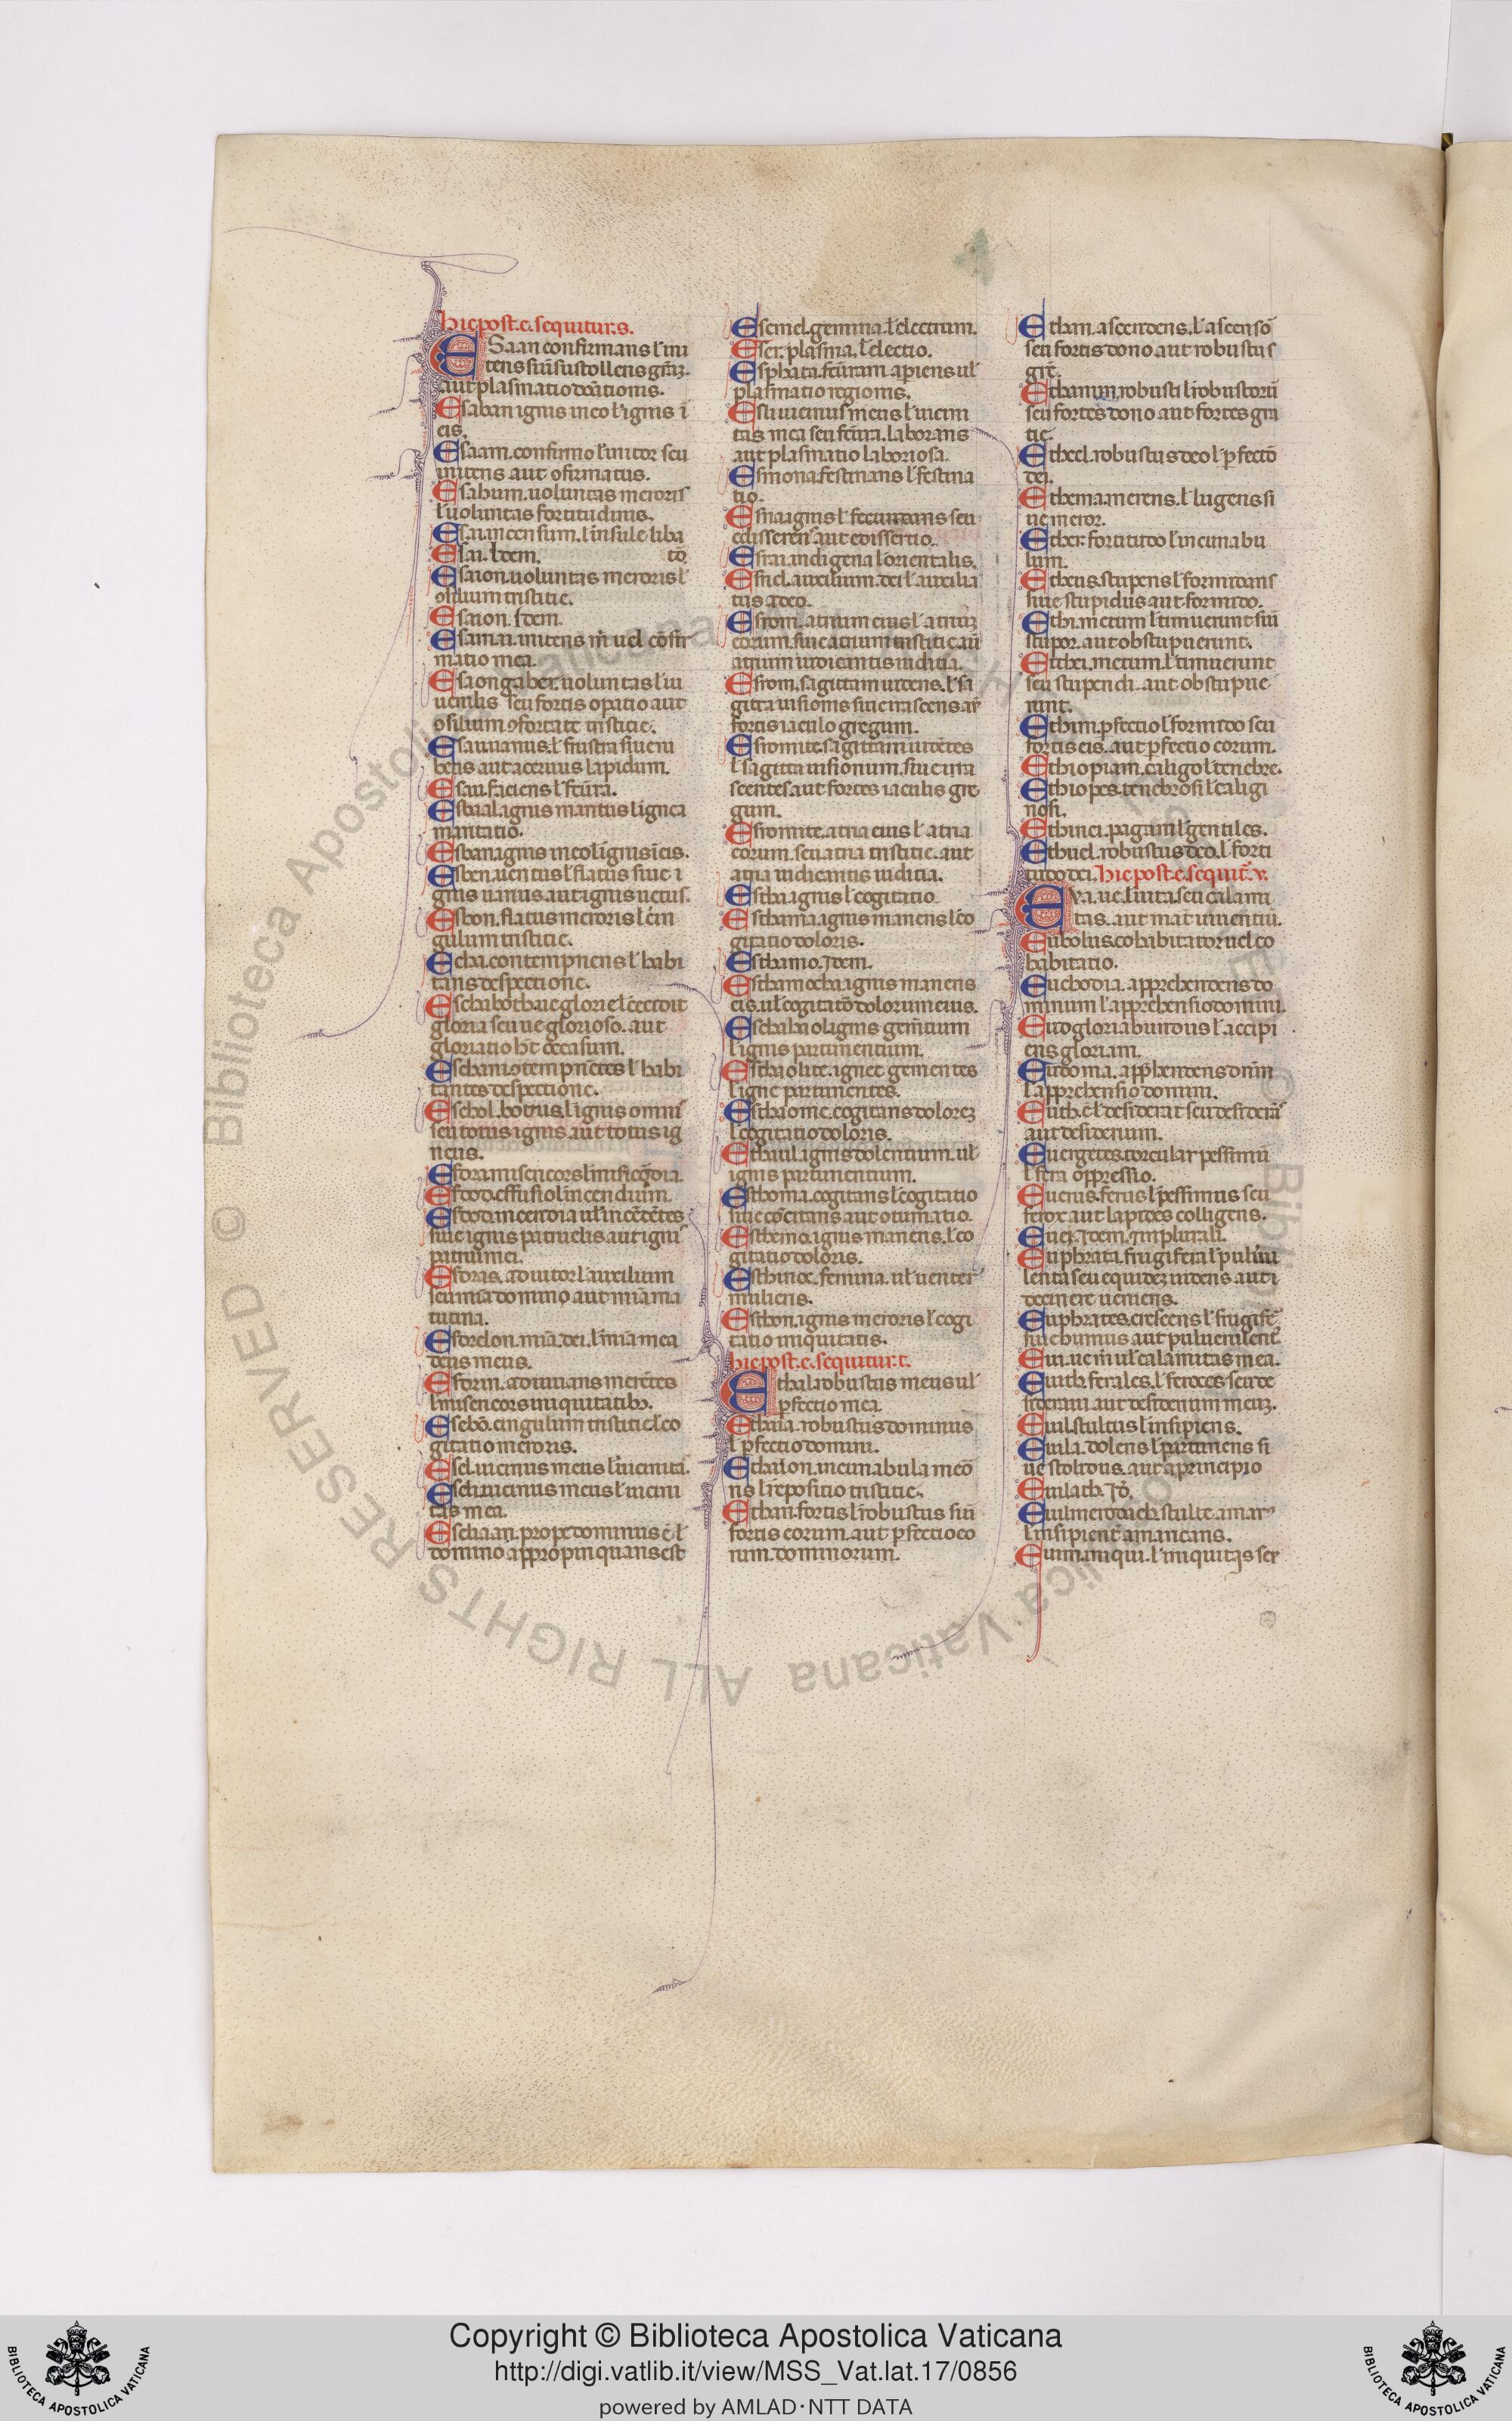 hic post .e. sequitur .s.
ESaan confirmans ł ini
tens siū sustollens grēz.
aut plasmatio dōationis.
Esaban ignis meo ł ignis ī
eis.
Esaam. confirmo ł initor seu
initens aut ꝯfirmatus.
Esabum. uoluntas meroris
ł uoluntas fortitudinis.
Esai. incensum. ł insule liba
Esai. Idem. tō.
Esaion. uoluntas meroris ł
ꝯsilium tristitie.
Esaion. Idem.
Esamai. initens m̄ uel cōfir
matio mea.
Esaongaber. uoluntas ł iu
uenilis seu fortis opatio aut
ꝯsilium ꝯfortate tristitie.
Esau uanus. ł frustra siue ru
bens aut aceruus lapidum.
Esau. faciens ł fc̄ura.
Esbaal. agnis mantus ł ignea
mantatio.
Esban ignis meo ł ignis ī eis.
Esben. uentus ł flatus siue i
gnis uanus. aut ignis uetus.
Esbon. flatus meroris ł cin
gulum tristitie.
Echa. contempnens ł habi
tans despectione.
Eschaboth. ue glorie ł cecidit
gloria seu ue glorioso. aut
gloriatio ht̄ occasum.
Eschani ꝯtempnētes ł habi
tantes despectione.
Eschol. botrus ł ignis omnis
seu totus ignis aut totus ig
neus.
Esdra. misericors ł mīficōdia.
Esdod. effusio ł incendium.
Esdod. incendia ul̄ incēdētes
siue ignis patruelis aut ignis
patrui mei.
Esdras. adiutor ł auxilium
seu mīa domino aut mīa ma
tutina.
Esdrelon. mīa dei. ł mīa mea
deus meus.
Esdrin. adiuuans merētes
ł misericors iniquitatibꝫ.
Esebō. cingulum tristitie ł co
gitatio meroris.
Esel. uicinus meus ł uicinitā.
Eseli. uicinus meus ł uicini
tas mea.
Eseliaan. prope dominus ē ł
domino appropinquans est
Esemel. gemina. ł electrum.
Eser. plasma. ł electio.
Esphata. fc̄uram apiens ul̄
plasmatio regionis.
Esli uicinus meus ł uicini
tas mea seu fc̄ura. laborans
aut plasmatio laboriosa.
Esmona. festinans ł festina
tio.
Esna ignis ł fecundans seu
edisserens aut edissertio.
Esrai. indigena ł orientalis.
Esriel. auxilium dei ł auxilia
tus a deo.
Esrom. atrium eius ł atriuz
eorum. siue atrium tristitie aū
atrium iudicantis iuditia.
Esrom. sagittam uidens. ł sa
gitta uisionis siue irascens aū
fortis iaculo gregum.
Esromite. sagittam uidētes
ł sagitta uisionum. siue ira
scentes aut fortes iaculis gre
gum.
Esromite. atria eius ł atria
eorum. seu atria tristitie. aut
atria iudicantis iuditia.
Estha ignis ł cogitatio
Esthama. ignis manens ł co
gitatio doloris.
Esthamo. Idem.
Esthamoeba ignis manens
eis. ul̄ cogitatō dolorum eius.
Esthahaol ignis gem̄tium
ł ignis parturientium.
Esthaolite. ignee gementes
ł igne parturientes.
Esthaome. cogitans dolorez
ł cogitatio doloris.
Ethaul. ignis dolentium. ul̄
ignis parturientium.
Esthoma. cogitans ł cogitatio
siue cōcitans aut ꝯtumatio
Esthemo. ignis manens. ł co
gitatio doloris.
Esthinoe. femina. ul̄ uenter
mulieris.
Esthon. ignis meroris ł cogi
tatio iniquitatis.
hic post .e. sequitur .t.
Ethai. robustus meus ul̄
pfectio mea.
Ethaia. robustus dominus
ł pfectio domini.
Ethailon. incunabula meō
ris ł repositio tristitie.
Ethan. fortis ł robustus siū
fortis eorum. aut pfectio eo
rum. dominorum.
Ethan. ascendens. ł ascensō
seu fortis dono aut robustus
grē.
Ethanim. robusti ł robustorū
seu fortes dono aut fortes gra
tie.
Etheel. robustus deo ł pfectō
dei.
Ethema. merens. ł lugens si
ue meror.
Ether. fortitudo ł incunabu
lum.
Etheus. stupens ł formidans
siue stupidus aut formido.
Ethi. metum ł timuerunt siū
stupor. aut obstupuerunt.
Etthei. metum. ł timuerunt
seu stupendi. aut obstupue
runt.
Ethim. pfectio ł formido seu
fortis eis. aut pfectio eorum.
Ethiopiam. caligo ł tenebre.
Ethiopes. tenebrosi ł caligi
nosi.
Ethinei. pagani ł gentiles.
Ethuel. robustus deo. ł forti
tudo dei. hic post .e. sequit̄ .v.
Eva. ue. ł uita. seu calami
tas. aut mat̄ uiuentiū.
Eubolus. cohabitator uel co
habitatio.
Euchodia. apprehendens do
minum ł apprehensio domini.
Eud. gloriabundus ł accipi
ens gloriam.
Eudoma. apphendens dn̄m
ł apprehensio domini.
Euth. ē ł desiderat seu desiderās
aut desiderium.
Euergetes. torcular pessimū
ł fera oppressio.
Eueus. ferus ł pessimus seu
ferox aut lapides colligens.
Euei. Idem. in plurali.
Euphrata. frugifera ł puluū
lenta seu equidez uidens aut i
decinere ueniens.
Euphrates. crescens ł frugifē
siue humus aut puluerulent̄.
Eui. ue m̄ ul̄ calamitas mea.
Euith. ferales. ł feroces seu de
siderant aut desiderium meuz.
Euil. stultus ł insipiens.
Euila. dolens ł parturiens si
ue stolidus. aut a principio
Euilath. Idē.
Euilmerodach. stulte amarꝰ
ł insipient̄ amaricans.
Euim. iniqui. ł iniquitas ser
Copyright © Biblioteca Apostolica Vaticana
http://digi.vatlib.it/view/MSS_Vat.lat.17/0856
powered by AMLAD · NTT DATA
BIBLIOTECA APOSTOLICA VATICANA
BIBLIOTECA APOSTOLICA VATICANA